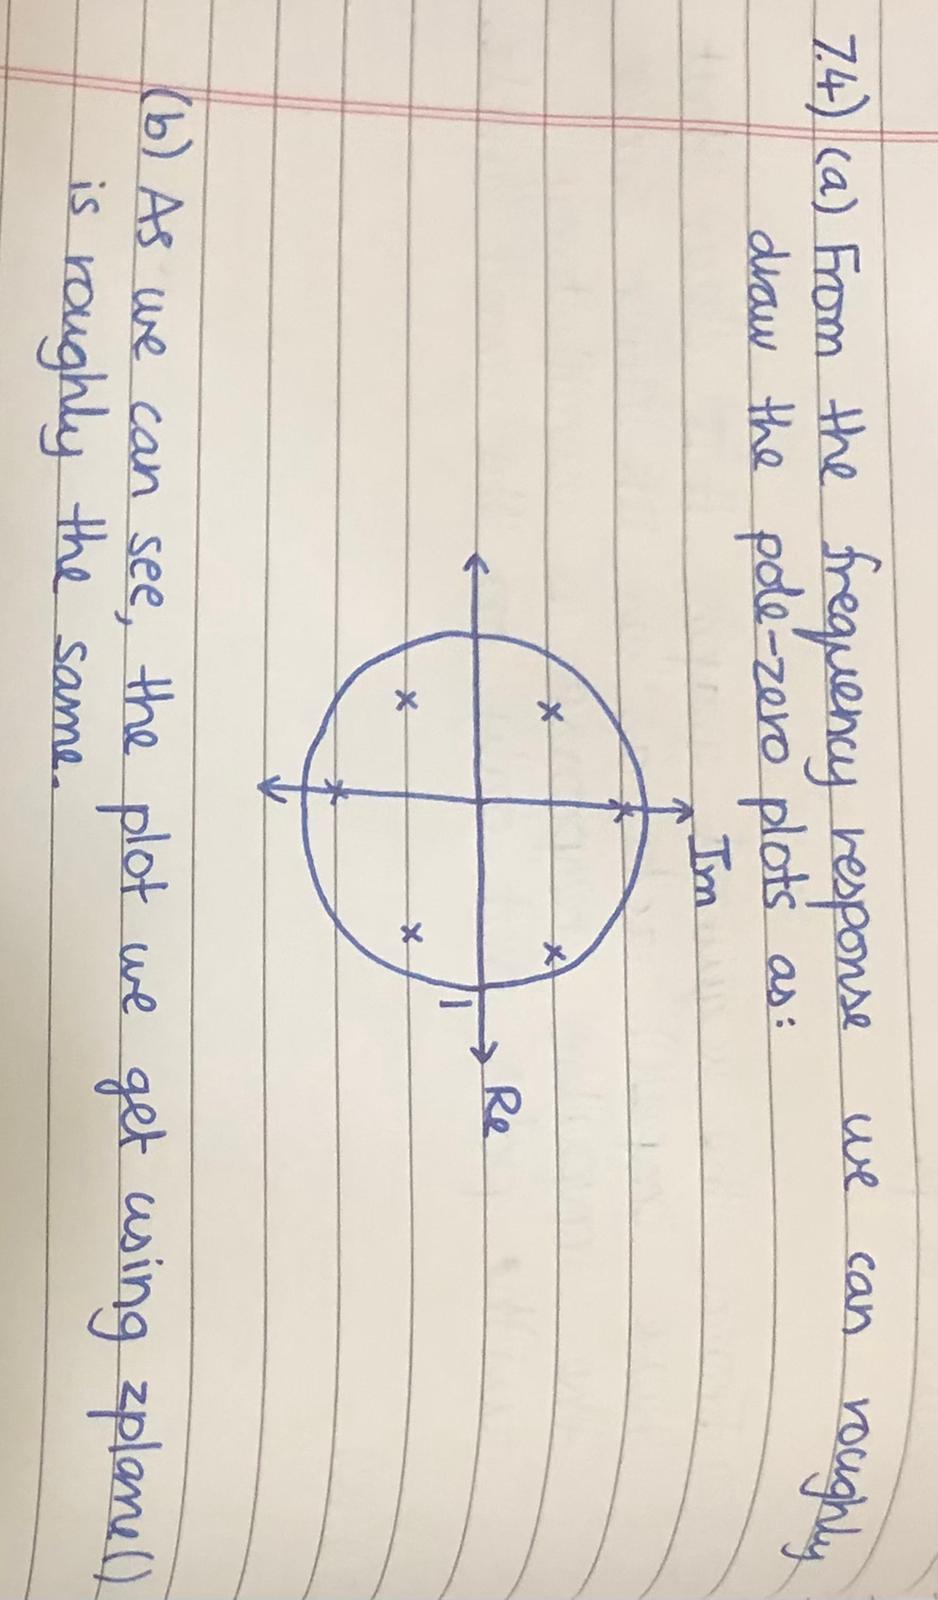 7.4) (a) From the frequency response we can roughly
draw the pole-zero plots as:
Im
Re
1
(b) As we can see, the plot we get using zplane()
is roughly the same.